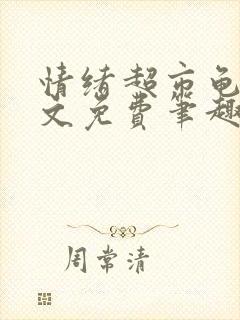 情绪超市龟
文免费笔趣
周常清